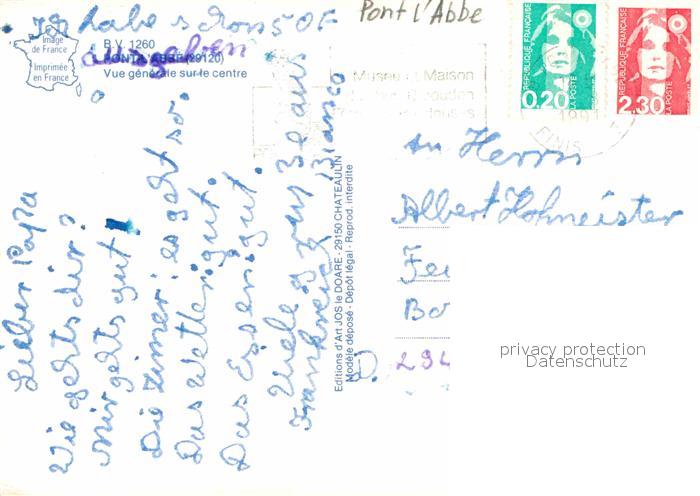 Ich habe schon 50F
ausgeben
Pont l'Abbe
Image
de France
Imprimée
en France
B.V. 1260
PONT-L'ABBÉ (29120)
Vue générale sur le centre
Musée et Maison
RÉPUBLIQUE FRANÇAISE
0,20
LA POSTE
RÉPUBLIQUE FRANÇAISE
2,30
LA POSTE
1991
FINIS
Lieber Papa
Wie gehts dir?
Mir gehts gut
Die Zimer es geht so.
Das Wetter: gut.
Das Essen: gut.
Viele Grüße aus
Frankreich Bianca
Editions d'Art JOS le DOARE - 29150 CHATEAULIN
Modèle déposé - Dépôt légal - Reprod. interdite
An Herrn
Albert Hofmeister
Fei
Bo
D. 294
privacy protection
Datenschutz